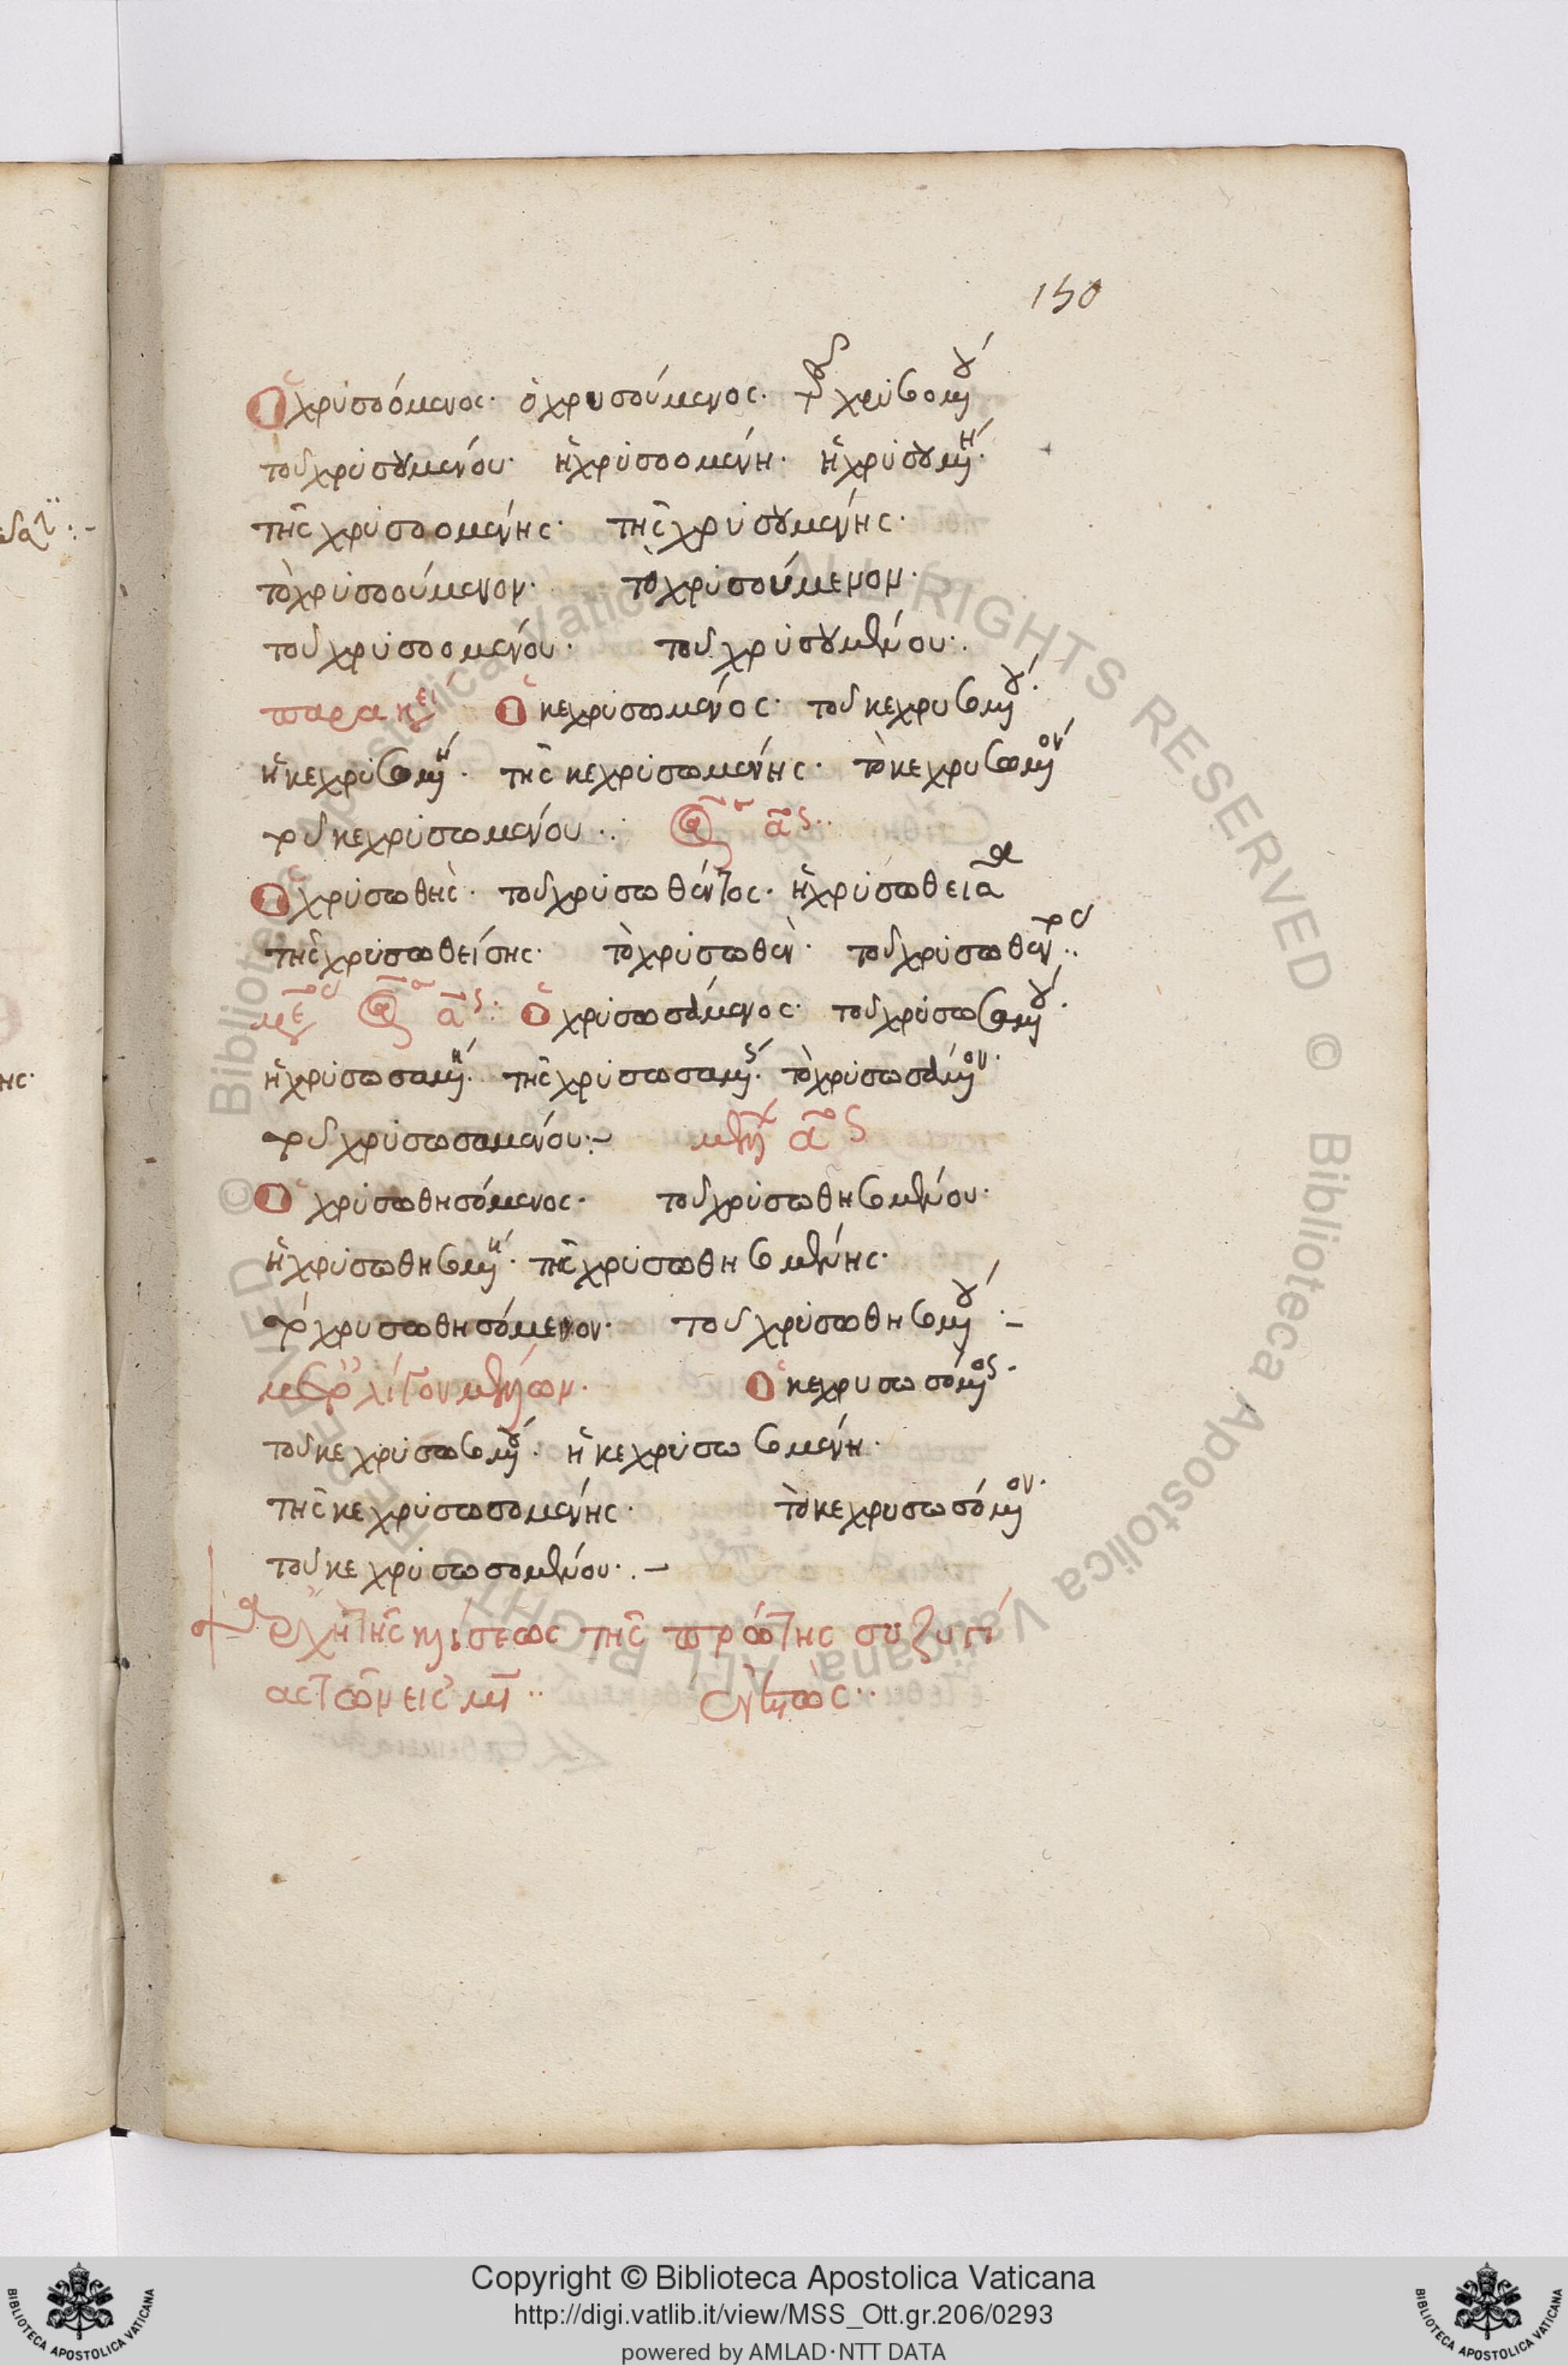 150
Ὁ χρυσοόμενος· ὁ χρυσούμενος· τοῦ χρυσομου
τοῦ χρυσουμένου· ἡ χρυσοομένη· ἡ χρυσουμη·
τῆς χρυσοομένης· τῆς χρυσουμένης·
τὸ χρυσοούμενον· τὸ χρυσούμενον·
τοῦ χρυσοομένου· τοῦ χρυσουμένου·
παρακει Ὁ κεχρυσωμένος· τοῦ κεχρυσωμου·
ἡ κεχρυσωμη· τῆς κεχρυσωμένης· τὸ κεχρυσωμον
τοῦ κεχρυσωμένου··
Ὁ χρυσωθεὶς· τοῦ χρυσωθέντος· ἡ χρυσωθεισα
τῆς χρυσωθείσης· τὸ χρυσωθὲν· τοῦ χρυσωθέντος··
Ὁ χρυσωσάμενος· τοῦ χρυσωσαμου·
ἡ χρυσωσαμη· τῆς χρυσωσαμης· τὸ χρυσωσάμον·
τοῦ χρυσωσαμένου:– μελλ α
Ὁ χρυσωθησόμενος· τοῦ χρυσωθησομένου·
ἡ χρυσωθησομη· τῆς χρυσωθησομένης·
τὸ χρυσωθησόμενον· τοῦ χρυσωθησομου·–
μετ' ὀλίγον μέλλων· Ὁ κεχρυσωσόμος·
τοῦ κεχρυσωσομου· ἡ κεχρυσωσομένη·
τῆς κεχρυσωσομένης· τὸ κεχρυσωσόμον·
τοῦ κεχρυσωσομένου·.–
ἀρχὴ τῆς κλίσεως τῆς πρώτης συζυγί
ας τῶν εἰς μι··
Copyright © Biblioteca Apostolica Vaticana
http://digi.vatlib.it/view/MSS_Ott.gr.206/0293
powered by AMLAD·NTT DATA